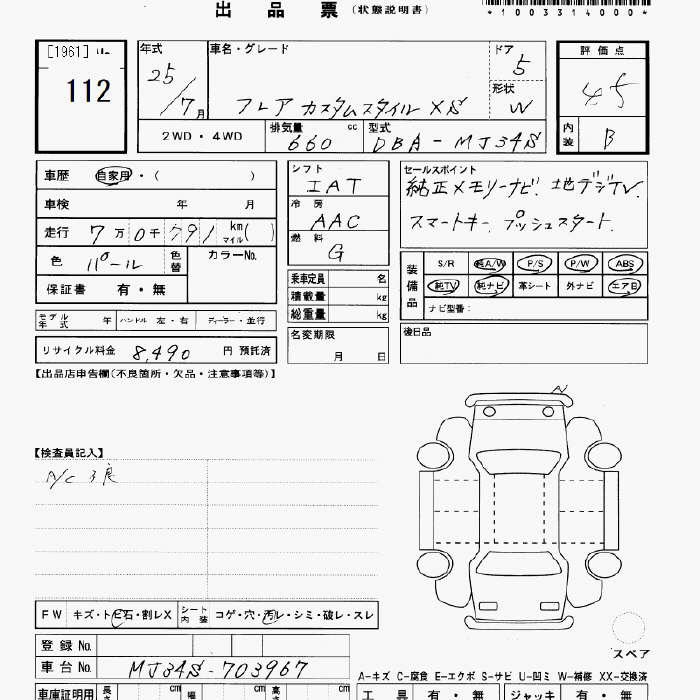 出品票(状態説明書)
*1003314000*
[1961]
112
年式
25/7月
車名・グレード
フレア カスタムスタイル XS
ドア
5
形状
W
評価点
4.5
内装
B
2WD・4WD
排気量 660 cc
型式 DBA-MJ34S
車歴 自家用・( )
車検 年 月
走行 7万0千791 km マイル( )
色 パール
色替
カラーNo.
保証書 有・無
シフト
IAT
冷房
AAC
燃料
G
セールスポイント
純正メモリーナビ. 地デジTV.
スマートキー. プッシュスタート.
装備品
S/R 純A/W P/S P/W ABS
純TV 純ナビ 革シート 外ナビ エアB
ナビ型番:
乗車定員 名
積載量 kg
総重量 kg
モデル年式 年 ハンドル 左・右 ディーラー・並行
名変期限
月 日
後日品
リサイクル料金 8,490 円 預託済
【出品店申告欄(不良箇所・欠品・注意事項等)】
【検査員記入】
A/C 3良
FW キズ・トビ石・割レX
シート内装 コゲ・穴・汚レ・シミ・破レ・スレ
登録 No.
車台 No. MJ34S-703967
スペア
A-キズ C-腐食 E-エクボ S-サビ U-凹ミ W-補修 XX-交換済
車庫証明用 長さ cm 幅 cm 高さ cm
工具 有・無 ジャッキ 有・無